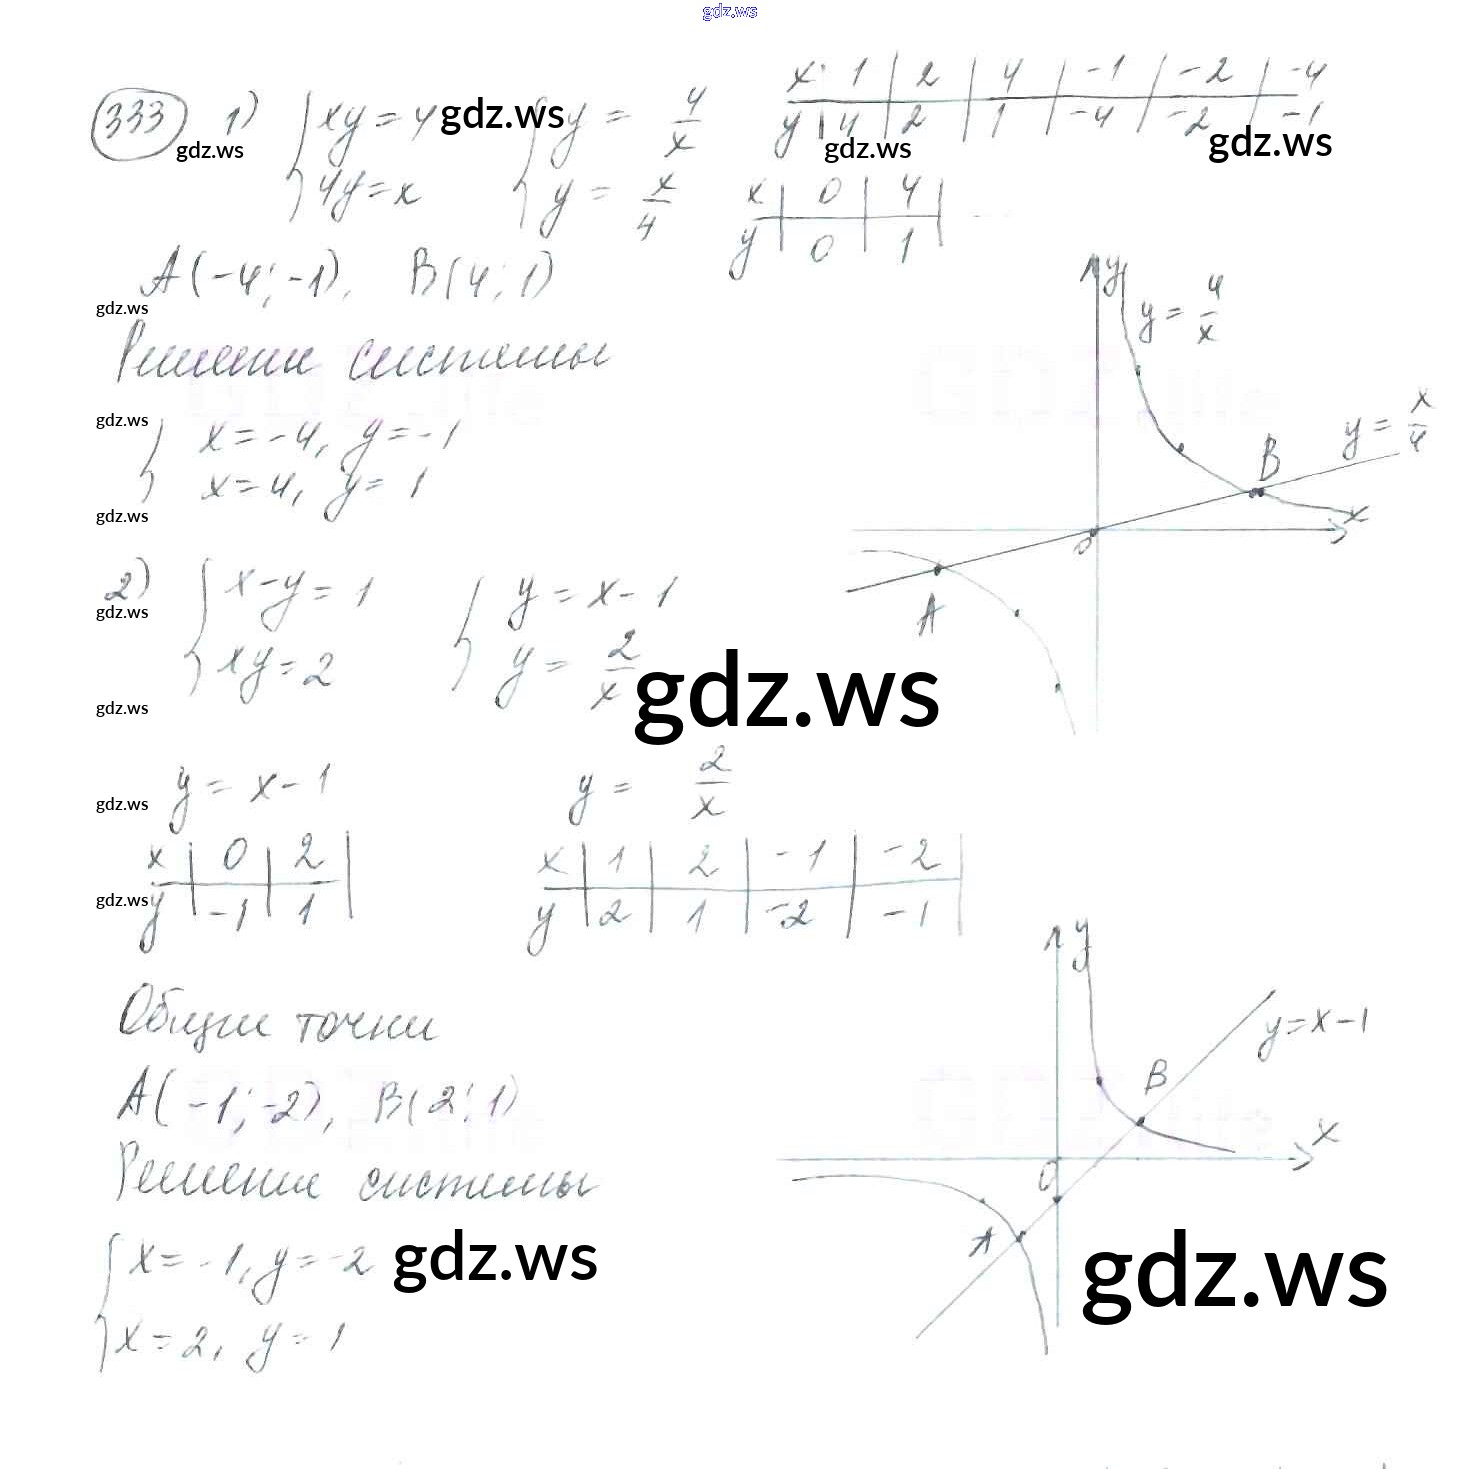 gdz.ws
333 1) { xy = 4 gdz.ws { y = 4/x
gdz.ws
4y = x y = x/4
x 1 2 4 -1 -2 -4
y 4 2 1 -4 -2 -1
gdz.ws gdz.ws
x 0 4
y 0 1
A(-4; -1), B(4; 1)
gdz.ws
Решение системы
gdz.ws
x = -4, y = -1
x = 4, y = 1
gdz.ws
y
y = 4/x
y = x/4
B
x
0
A
2) { x - y = 1 { y = x - 1
gdz.ws
xy = 2 y = 2/x
gdz.ws
gdz.ws
y = x - 1 y = 2/x
gdz.ws
x 0 2
y -1 1
gdz.ws
x 1 2 -1 -2
y 2 1 -2 -1
Общие точки
A(-1; -2), B(2; 1)
Решение системы
{ x = -1, y = -2
gdz.ws
x = 2, y = 1
y
y = x - 1
B
x
0
A
gdz.ws